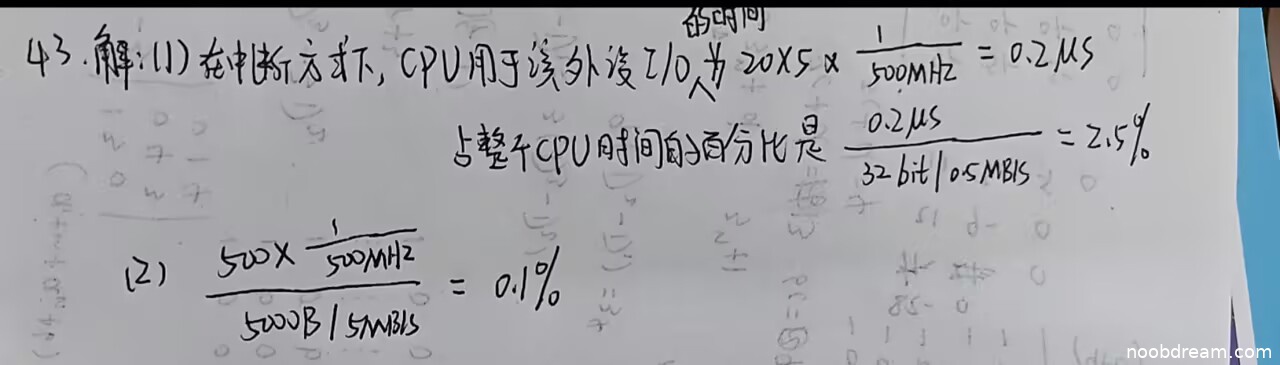 的时间
43.解:(1)在中断方式下,CPU用于该外设I/O为 20×5× 1/500MHZ = 0.2μs
占整个CPU时间的百分比是 0.2μs / 32bit/0.5MB/S = 2.5%
(2) 500× 1/500MHZ / 5000B/5MB/S = 0.1%
noobdream.com